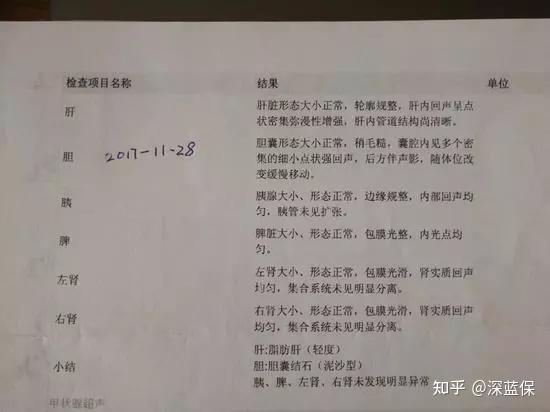 检查项目名称 结果 单位
肝 肝脏形态大小正常，轮廓规整，肝内回声呈点
状密集弥漫性增强，肝内管道结构尚清晰。
胆 2017-11-28 胆囊形态大小正常，稍毛糙，囊腔内见多个密
集的细小点状强回声，后方伴声影，随体位改
变缓慢移动。
胰 胰腺大小、形态正常，边缘规整，内部回声均
匀，胰管未见扩张。
脾 脾脏大小、形态正常，包膜光整，内光点均
匀。
左肾 左肾大小、形态正常，包膜光滑，肾实质回声
均匀，集合系统未见明显分离。
右肾 右肾大小、形态正常，包膜光滑，肾实质回声
均匀，集合系统未见明显分离。
肝:脂肪肝（轻度）
小结 胆:胆囊结石（泥沙型）
胰、脾、左肾、右肾未发现明显异常
甲状腺超声
知乎 @深蓝保